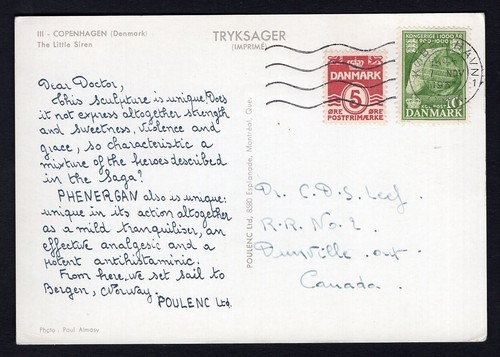 III - COPENHAGEN (Denmark)
The Little Siren
TRYKSAGER
(IMPRIMÉ)
Dear Doctor,
This sculpture is unique. Does
it not express altogether strength
and sweetness, violence and
grace, so characteristic a
mixture of the heroes described
in the Saga?
PHENERGAN also is unique:
unique in its action altogether
as a mild tranquiliser, an
effective analgesic and a
potent antihistaminic.
From here, we set sail to
Bergen, Norway.
POULENC Ltd.
Photo - Paul Almasy
POULENC Ltd, 8580 Esplanade, Montréal, Que.
DANMARK
5
ØRE ØRE
POSTFRIMÆRKE
KONGERIGE I 1000 ÅR
10
DANMARK
Dr. C.D.S. Leef.
R.R. No. 1.
Dunville . ont.
Canada.